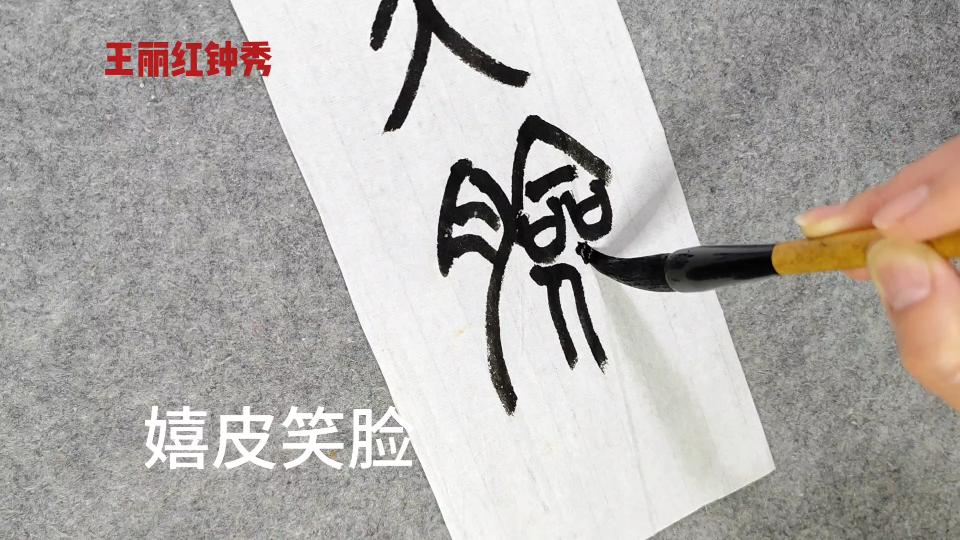 王丽红钟秀
臉
嬉皮笑脸